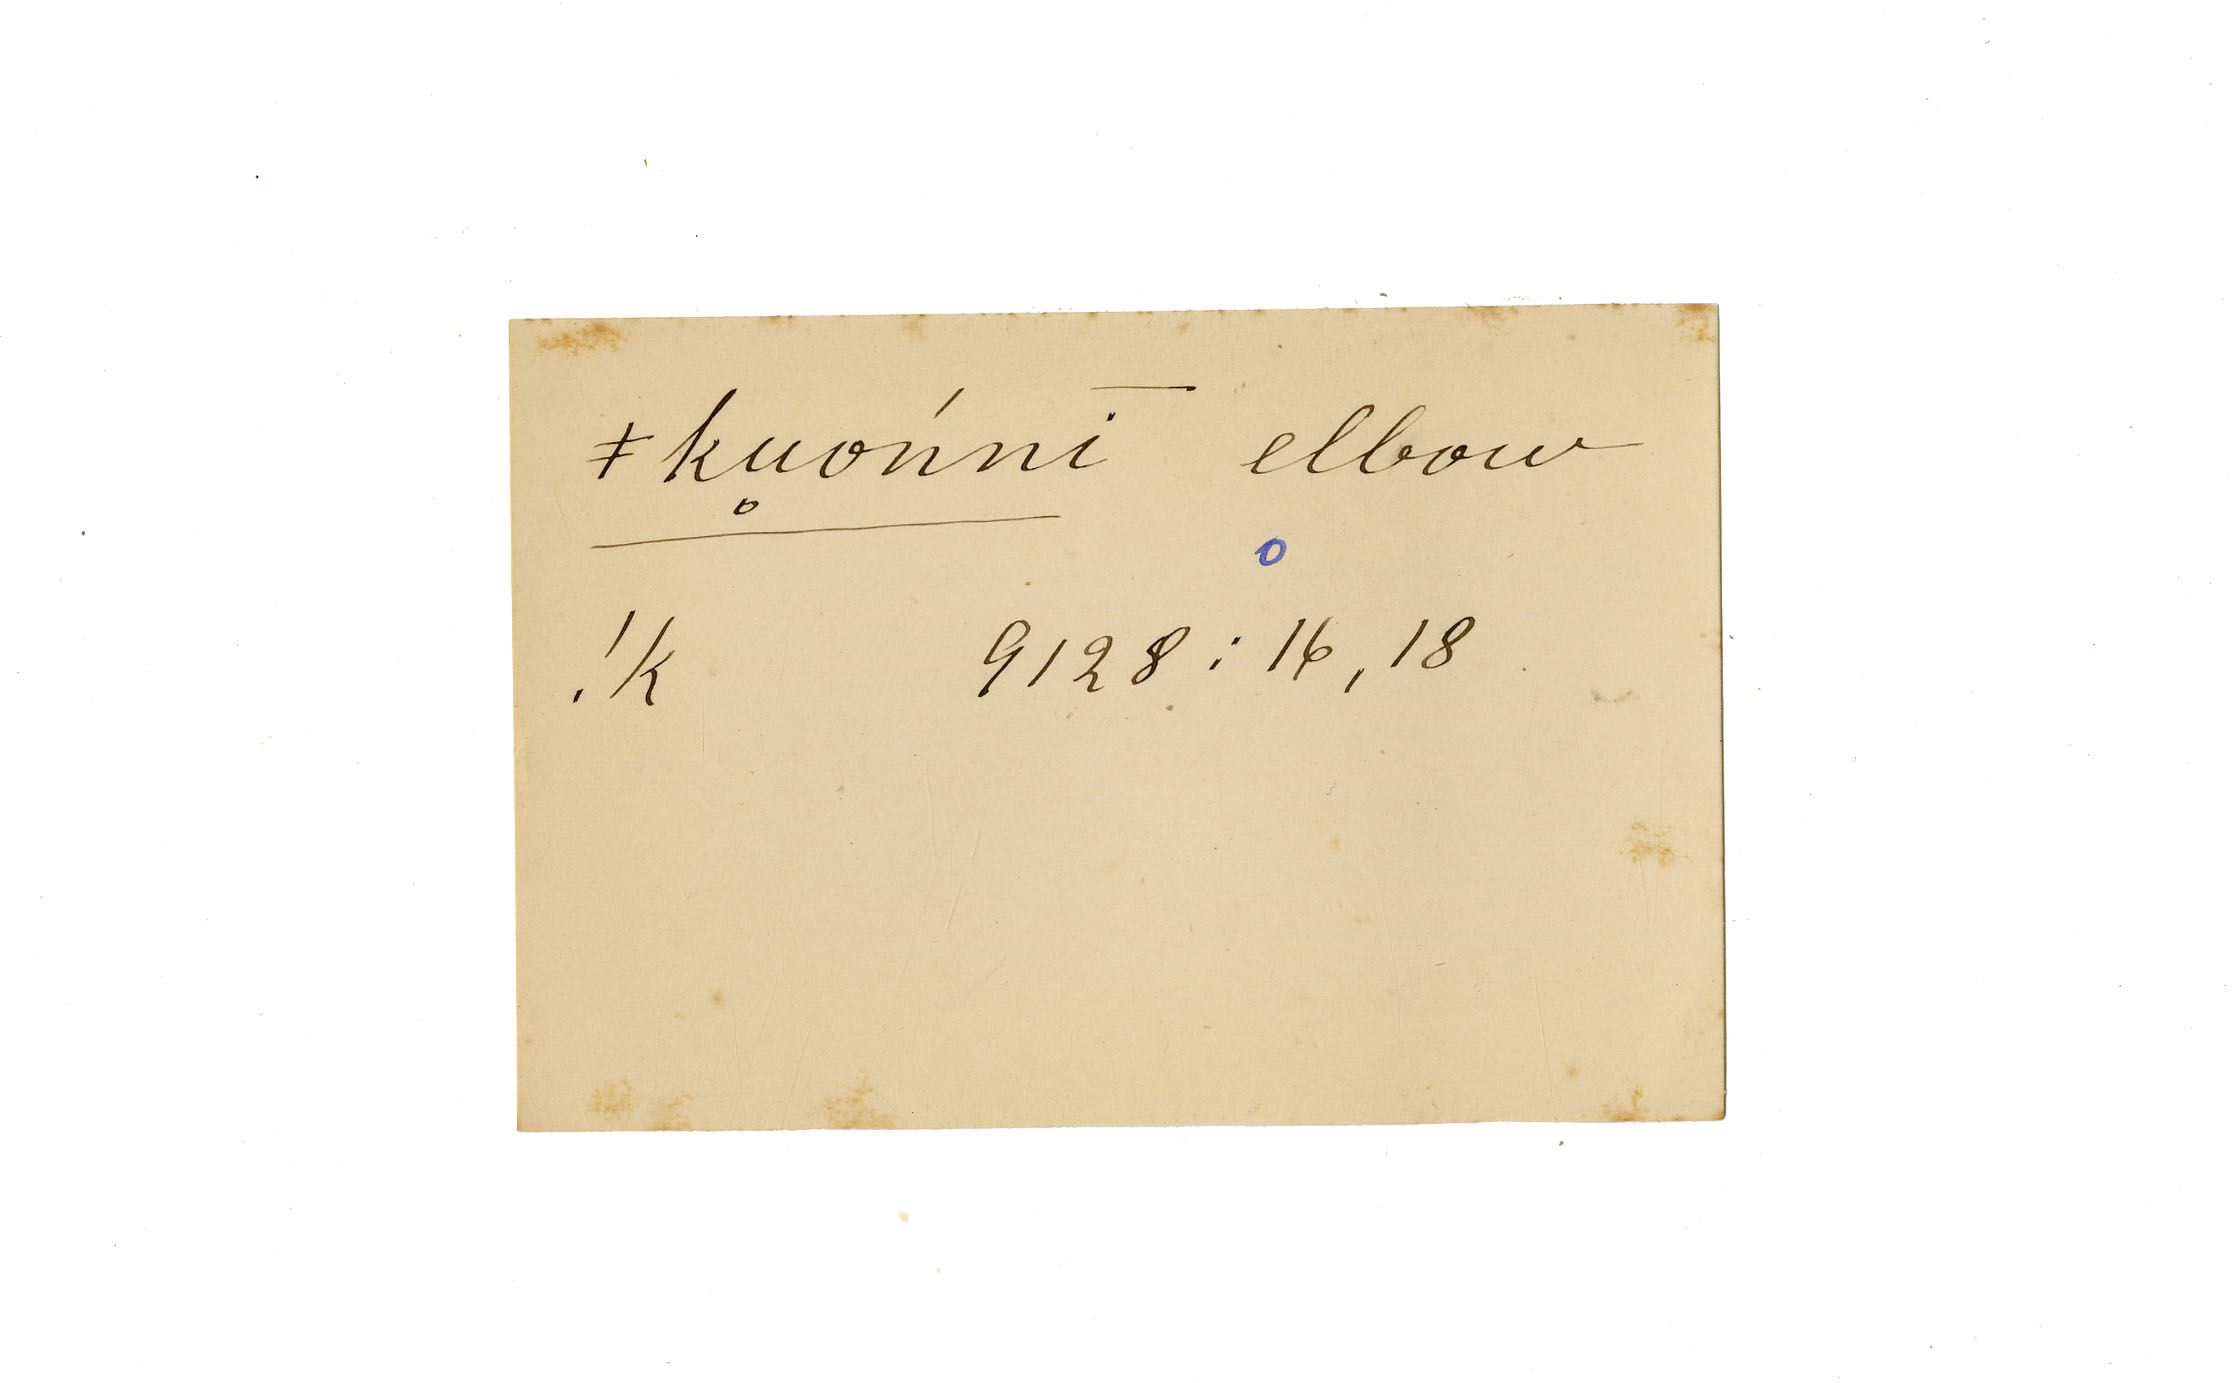 ǂku̥ońnī elbow
o
!k 9128 : 16, 18